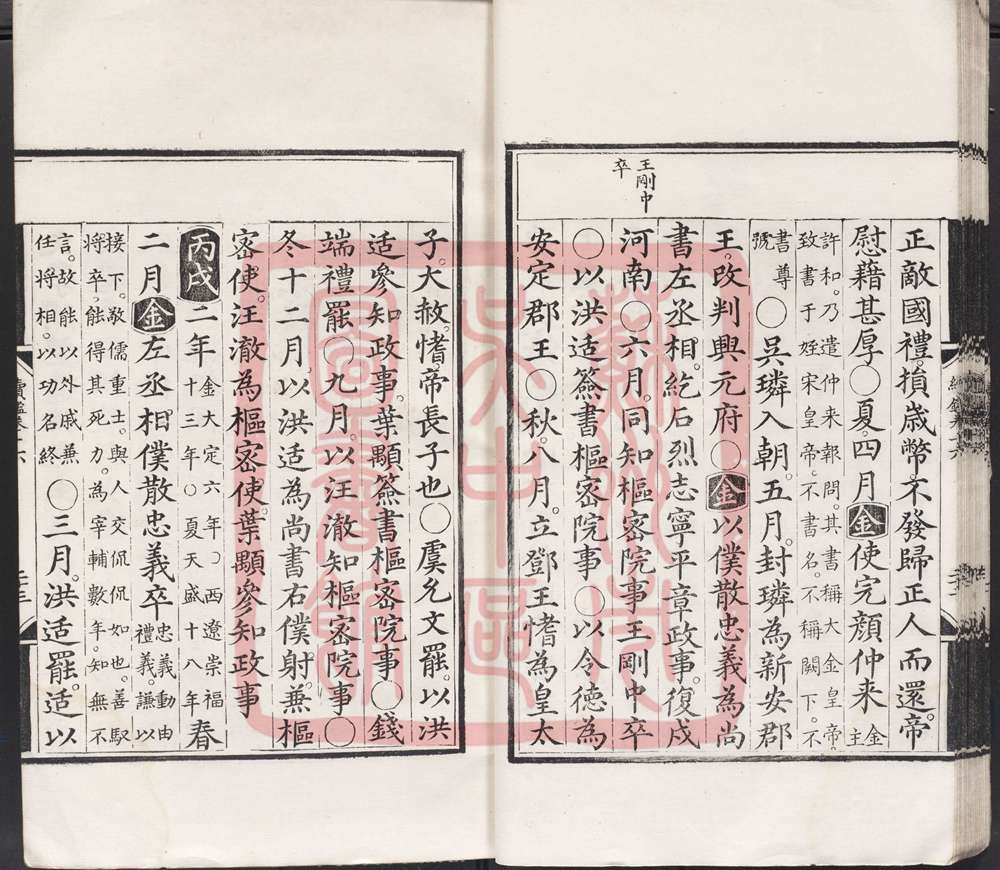 王剛中
卒
正敵國禮。損歲幣。不發歸正人而還。帝
慰藉甚厚○夏。四月金使完顏仲来金主
許和。乃遣仲来報問。其書稱大金皇帝。
致書于姪宋皇帝。不書名。不稱闕下。不
書尊
號○吳璘入朝。五月。封璘為新安郡
王。改判興元府○金以僕散忠義為尚
書左丞相。紇石烈志寧平章政事。復戍
河南○六月。同知樞密院事王剛中卒
○以洪适簽書樞密院事○以令德為
安定郡王○秋。八月。立鄧王愭為皇太
子。大赦。愭。帝長子也○虞允文罷。以洪
适參知政事。葉顒簽書樞密院事○錢
端禮罷○九月。以汪澈知樞密院事○
冬十二月。以洪适為尚書右僕射。兼樞
密使。汪澈為樞密使。葉顒參知政事
丙戌二年金大定六年。○西遼崇福
十三年○夏天盛十八年春
二月金左丞相僕散忠義卒忠義動由
禮義。謙以
接下。敬儒重士。與人交侃侃如也。善馭
將卒。能得其死力。為宰輔數年。知無不
言。故能以外戚兼
任將相。以功名終○三月。洪适罷。适以